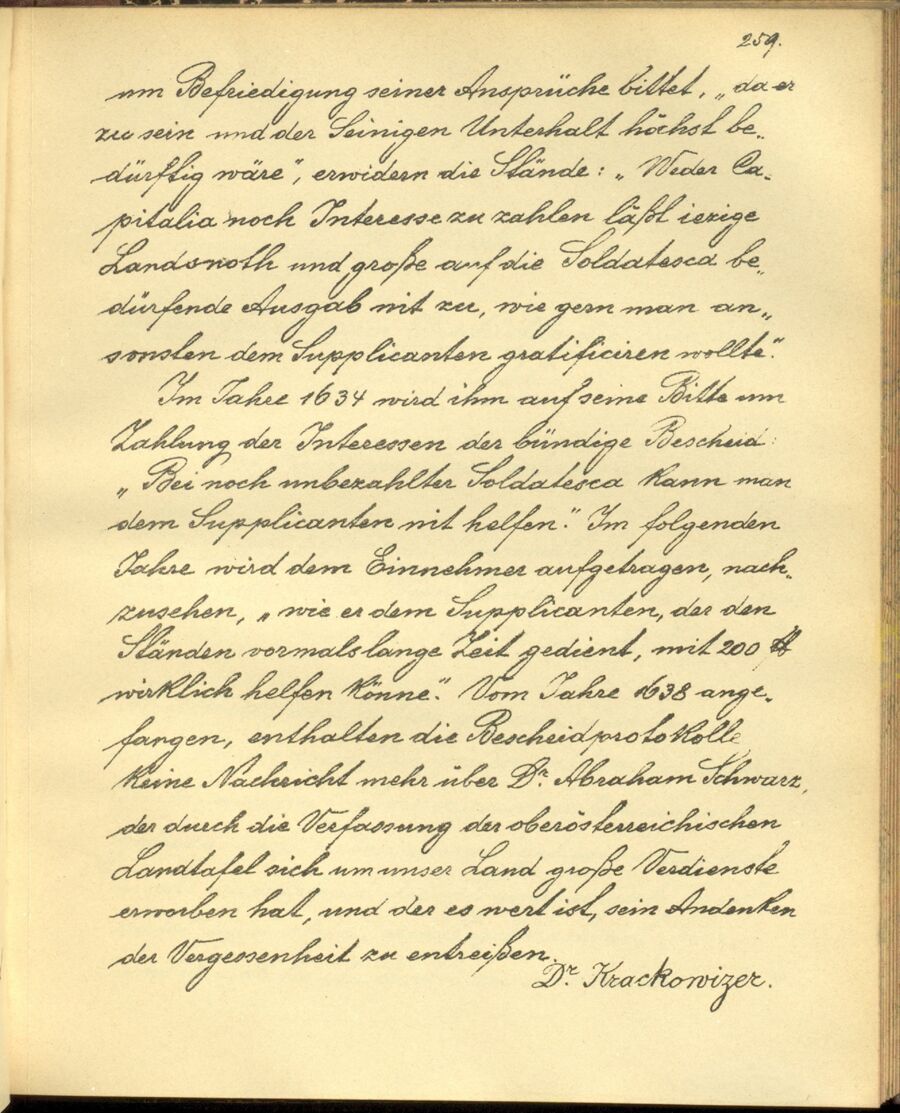 259.
um Befriedigung seiner Ansprüche bittet, „da er
zu sein und der Seinigen Unterhalt höchst be„
dürftig wäre“, erwidern die Stände: „Weder Ca„
pitalia noch Interesse zu zahlen läßt iezige
Landsnoth und große auf die Soldatesca be„
dürfende Ausgab nit zu, wie gern man an„
sonsten dem Supplicanten gratificiren wollte“.
Im Jahre 1634 wird ihm auf seine Bitte um
Zahlung der Interessen der bündige Bescheid:
„Bei noch unbezahlter Soldatesca kann man
dem Supplicanten nit helfen.“ Im folgenden
Jahre wird dem Einnehmer aufgetragen, nach„
zusehen, „wie er dem Supplicanten, der den
Ständen vormals lange Zeit gedient, mit 200 ℔
wirklich helfen könne“. Vom Jahre 1638 ange„
fangen, enthalten die Bescheidprotokolle
keine Nachricht mehr über Dr. Abraham Schwarz,
der durch die Verfassung der oberösterreichischen
Landtafel sich um unser Land große Verdienste
erworben hat, und der es wert ist, sein Andenken
der Vergessenheit zu entreißen.
Dr. Krackowizer.